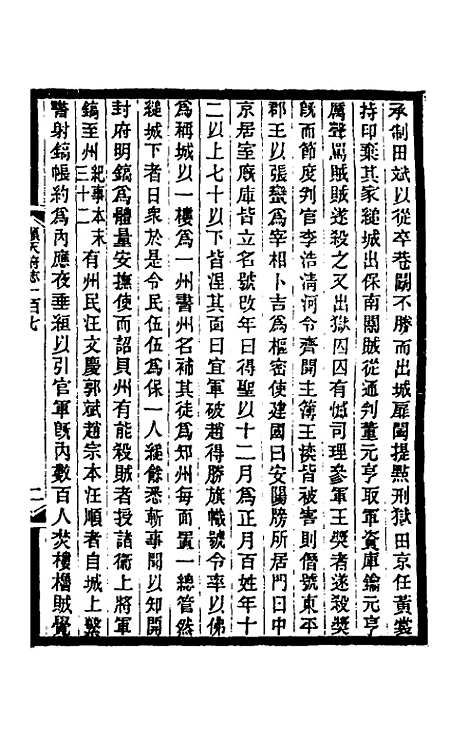 承制田斌以從卒巷鬭不勝而出城扉闔提點刑獄田京任黃裳
持印棄其家縋城出保南關賊從通判董元亨取軍資庫鑰元亨
厲聲罵賊賊遂殺之又出獄囚囚有憾司理參軍王奬者遂殺奬
旣而節度判官李浩淸河令齊開主簿王㳿皆被害則僭號東平
郡王以張巒為宰相卜吉為樞密使建國曰安陽牓所居門曰中
京居室廐庫皆立名號改年曰得聖以十二月為正月百姓年十
二以上七十以下皆湼其面曰宜軍破趙得勝旗幟號令率以佛
為稱城以一樓為一州書州名補其徒為知州每面置一總管然
縋城下者日衆於是令民伍伍為保一人縋餘悉斬事聞以知開
封府明鎬為體量安撫使而詔貝州有能殺賊者授諸衞上將軍
鎬至州紀事本末三十二有州民汪文慶郭斌趙宗本汪順者自城上繫
書射鎬帳約為內應夜垂絙以引官軍旣內數百人焚樓櫓賊覺
順天府志一百七